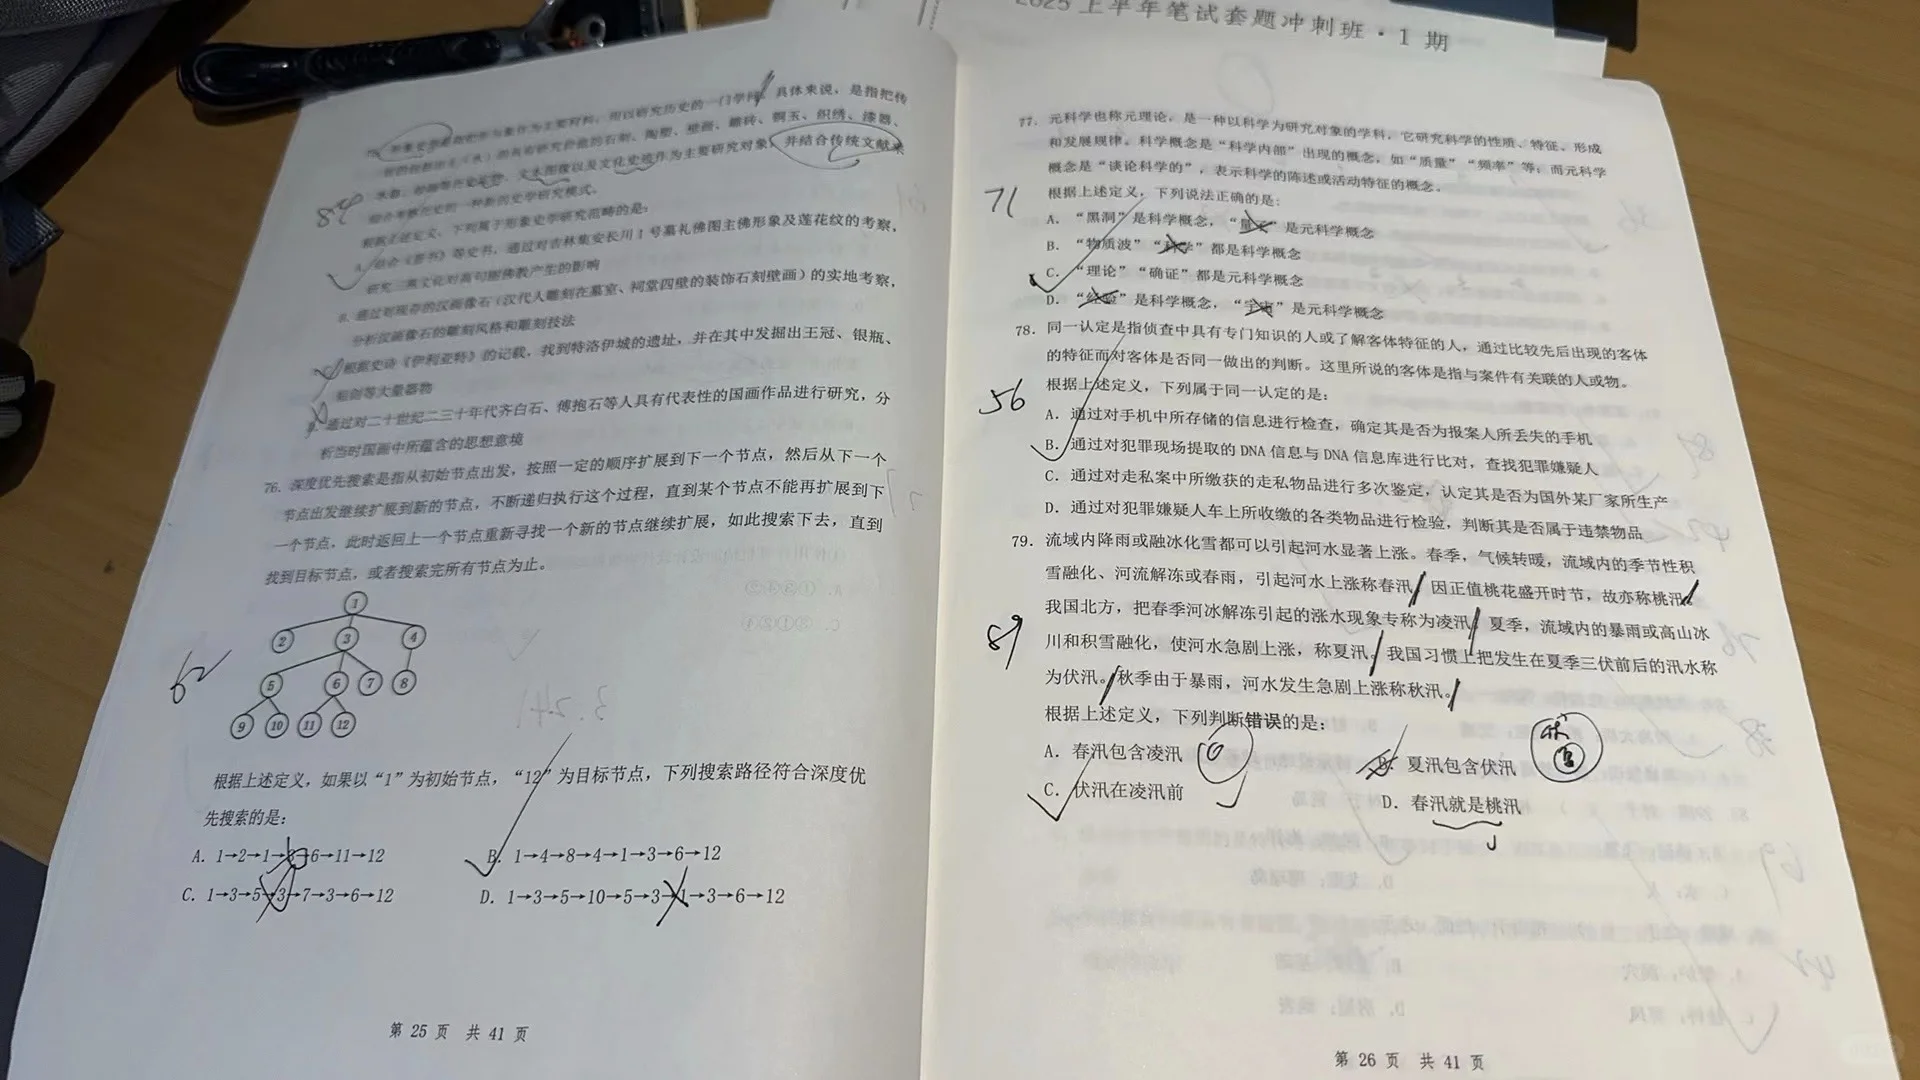 2025 上半年笔试套题冲刺班·1 期
料，用以研究历史的一门学问。具体来说，是指把传
的石刻、陶塑、壁画、雕砖、铜玉、织绣、漆器、
文本图像以及文化史迹作为主要研究对象，并结合传统文献来
综合考察历史的一种新的史学研究模式。
84
根据上述定义，下列属于形象史学研究范畴的是：
A. 结合《晋书》等史书，通过对吉林集安长川 1 号墓礼佛图主佛形象及莲花纹的考察，
研究文化对高句丽佛教产生的影响
B. 通过对现存的汉画像石（汉代人雕刻在墓室、祠堂四壁的装饰石刻壁画）的实地考察，
分析汉画像石的雕刻风格和雕刻技法
C. 根据史诗《伊利亚特》的记载，找到特洛伊城的遗址，并在其中发掘出王冠、银瓶、
短剑等大量器物
D. 通过对二十世纪二三十年代齐白石、傅抱石等人具有代表性的国画作品进行研究，分
析当时国画中所蕴含的思想意境
76. 深度优先搜索是指从初始节点出发，按照一定的顺序扩展到下一个节点，然后从下一个
节点出发继续扩展到新的节点，不断递归执行这个过程，直到某个节点不能再扩展到下
一个节点，此时返回上一个节点重新寻找一个新的节点继续扩展，如此搜索下去，直到
找到目标节点，或者搜索完所有节点为止。
1
2 3 4
62
5 6 7 8
9 10 11 12
根据上述定义，如果以“1”为初始节点，“12”为目标节点，下列搜索路径符合深度优
先搜索的是：
A. 1→2→1→3→6→11→12
B. 1→4→8→4→1→3→6→12
C. 1→3→5→3→7→3→6→12
D. 1→3→5→10→5→3→1→3→6→12
第 25 页 共 41 页
77. 元科学也称元理论，是一种以科学为研究对象的学科，它研究科学的性质、特征、形成
和发展规律。科学概念是“科学内部”出现的概念，如“质量”“频率”等；而元科学
概念是“谈论科学的”，表示科学的陈述或活动特征的概念。
71
根据上述定义，下列说法正确的是：
A. “黑洞”是科学概念，“量子”是元科学概念
B. “物质波”“科学”都是科学概念
C. “理论”“确证”都是元科学概念
D. “经验”是科学概念，“宇宙”是元科学概念
78. 同一认定是指侦查中具有专门知识的人或了解客体特征的人，通过比较先后出现的客体
的特征而对客体是否同一做出的判断。这里所说的客体是指与案件有关联的人或物。
56
根据上述定义，下列属于同一认定的是：
A. 通过对手机中所存储的信息进行检查，确定其是否为报案人所丢失的手机
B. 通过对犯罪现场提取的 DNA 信息与 DNA 信息库进行比对，查找犯罪嫌疑人
C. 通过对走私案中所缴获的走私物品进行多次鉴定，认定其是否为国外某厂家所生产
D. 通过对犯罪嫌疑人车上所收缴的各类物品进行检验，判断其是否属于违禁物品
79. 流域内降雨或融冰化雪都可以引起河水显著上涨。春季，气候转暖，流域内的季节性积
雪融化、河流解冻或春雨，引起河水上涨称春汛，因正值桃花盛开时节，故亦称桃汛。
我国北方，把春季河冰解冻引起的涨水现象专称为凌汛。夏季，流域内的暴雨或高山冰
89
川和积雪融化，使河水急剧上涨，称夏汛。我国习惯上把发生在夏季三伏前后的汛水称
为伏汛。秋季由于暴雨，河水发生急剧上涨称秋汛。
根据上述定义，下列判断错误的是：
A. 春汛包含凌汛
B. 夏汛包含伏汛
C. 伏汛在凌汛前
D. 春汛就是桃汛
第 26 页 共 41 页